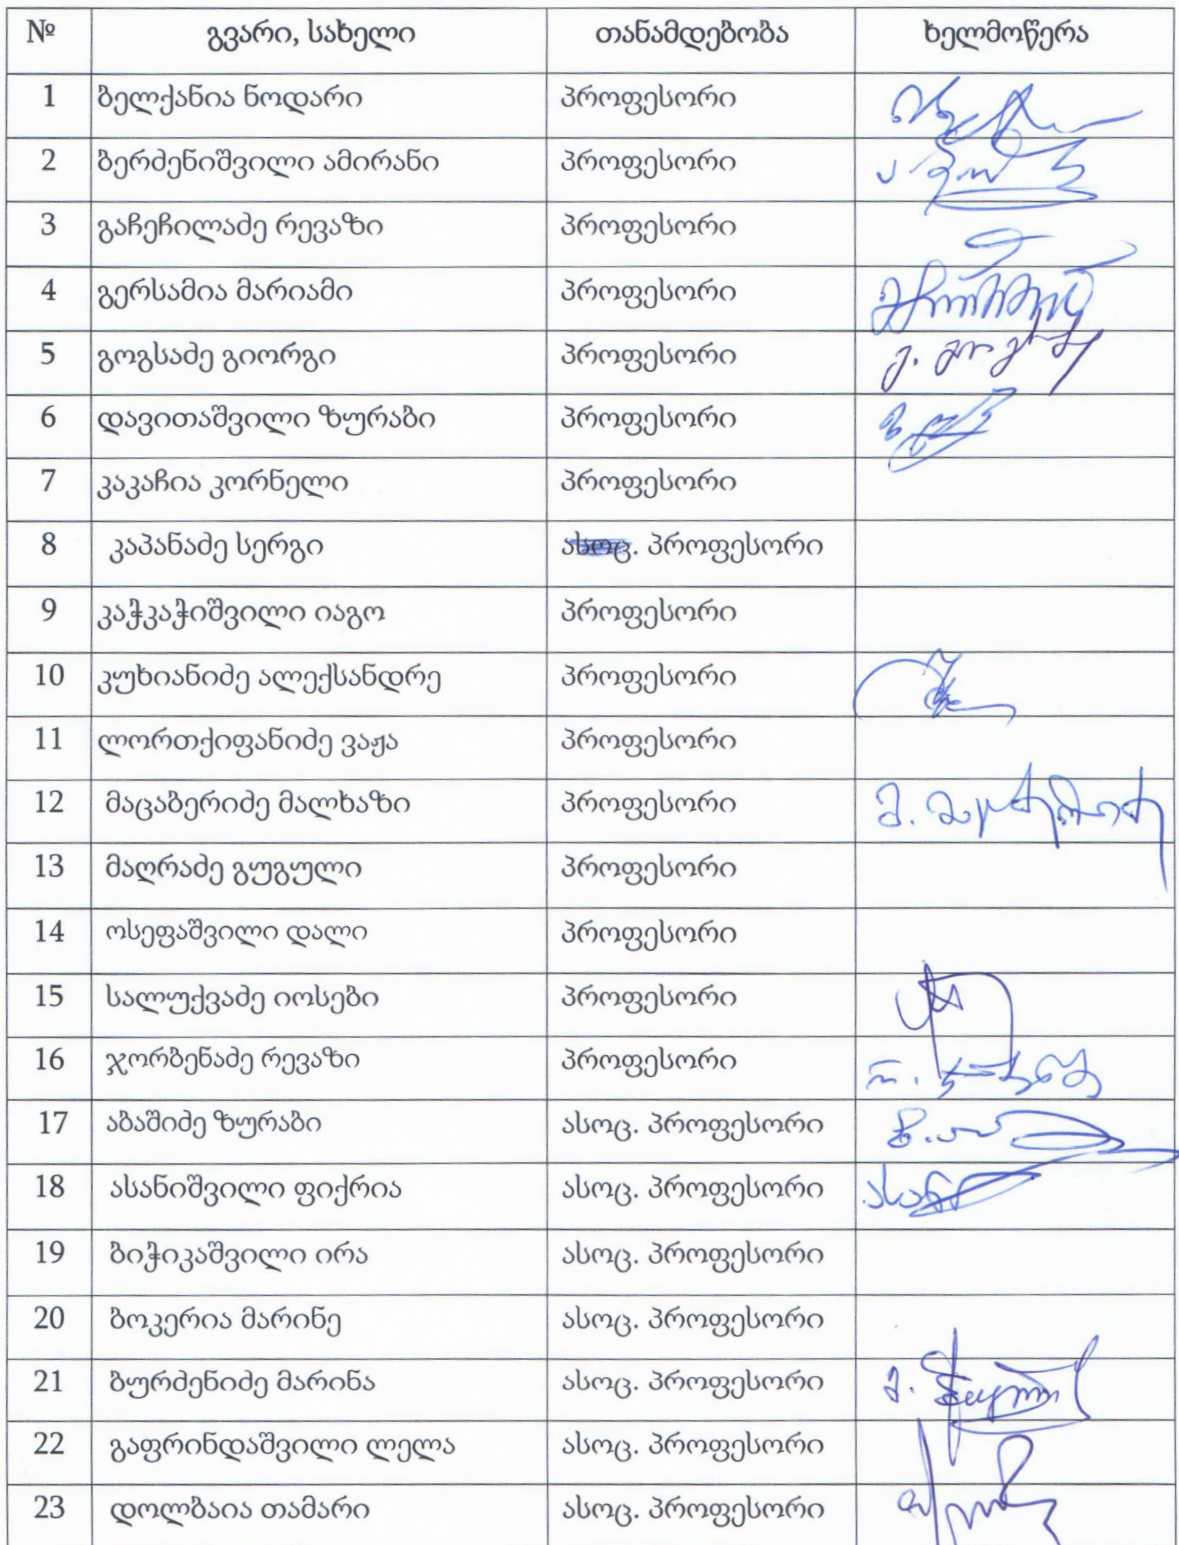 № გვარი, სახელი თანამდებობა ხელმოწერა
1 ბელქანია ნოდარი პროფესორი
2 ბერძენიშვილი ამირანი პროფესორი
3 გაჩეჩილაძე რევაზი პროფესორი
4 გერსამია მარიამი პროფესორი
5 გოგსაძე გიორგი პროფესორი
6 დავითაშვილი ზურაბი პროფესორი
7 კაკაჩია კორნელი პროფესორი
8 კაპანაძე სერგი ასოც. პროფესორი
9 კაჭკაჭიშვილი იაგო პროფესორი
10 კუხიანიძე ალექსანდრე პროფესორი
11 ლორთქიფანიძე ვაჟა პროფესორი
12 მაცაბერიძე მალხაზი პროფესორი
13 მაღრაძე გუგული პროფესორი
14 ოსეფაშვილი დალი პროფესორი
15 სალუქვაძე იოსები პროფესორი
16 ჯორბენაძე რევაზი პროფესორი
17 აბაშიძე ზურაბი ასოც. პროფესორი
18 ასანიშვილი ფიქრია ასოც. პროფესორი
19 ბიჭიკაშვილი ირა ასოც. პროფესორი
20 ბოკერია მარინე ასოც. პროფესორი
21 ბურძენიძე მარინა ასოც. პროფესორი
22 გაფრინდაშვილი ლელა ასოც. პროფესორი
23 დოლბაია თამარი ასოც. პროფესორი